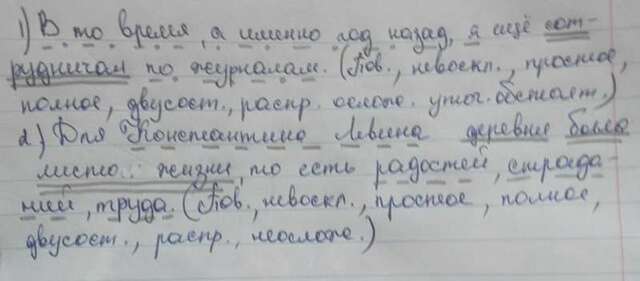 1) В то время, а именно год назад, я ещё сот-
рудничал по журналам. (Пов., невоскл., простое,
полное, двусост., распр. ослож. уточ. обстоят.)
2) Для Константина Левина деревня была
место: жизни, то есть радостей, страда-
ний, труда. (Пов., невоскл., простое, полное,
двусост., распр., неослож.)